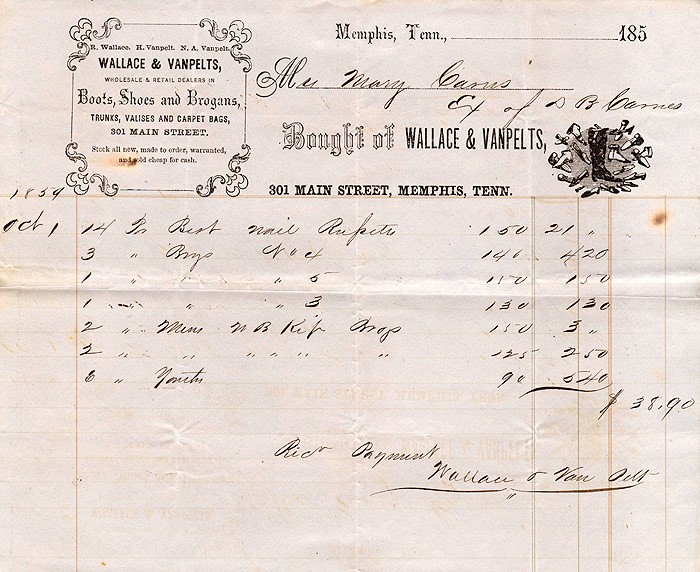 R. Wallace. H. Vanpelt. N. A. Vanpelt.
WALLACE & VANPELTS,
WHOLESALE & RETAIL DEALERS IN
Boots, Shoes and Brogans,
TRUNKS, VALISES AND CARPET BAGS,
301 MAIN STREET.
Stock all new, made to order, warranted,
and sold cheap for cash.
Memphis, Tenn., 185
Mrs Mary Carns
Ex of D B Carnes
Bought of WALLACE & VANPELTS,
301 MAIN STREET, MEMPHIS, TENN.
1859
Oct 1 14 Pr Best nail Russets 1 50 21 "
3 " Boys No 4 1 40 4 20
1 " " " 5 1 50 1 50
1 " " " 3 1 30 1 30
2 " Mens W B Kip Brogs 1 50 3 "
2 " " " " " " 1 25 2 50
6 " Youths 90 5 40
$ 38.90
Recd Payment
Wallace & Van Pelt